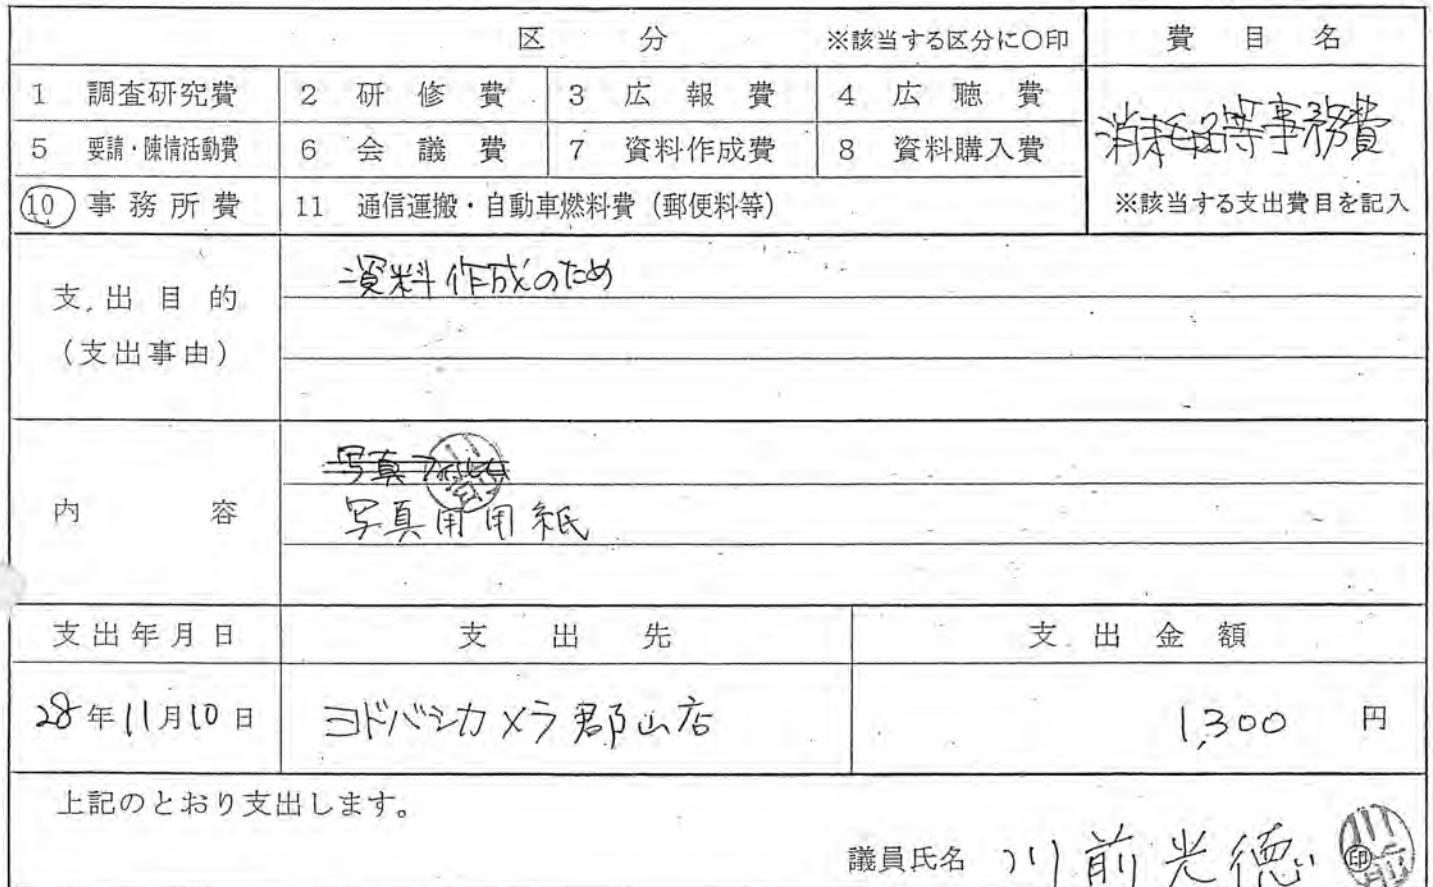 区 分 ※該当する区分に○印 費 目 名
1 調査研究費 2 研 修 費 3 広 報 費 4 広 聴 費
消耗品等事務費
5 要請・陳情活動費 6 会 議 費 7 資料作成費 8 資料購入費
10 事務所費 11 通信運搬・自動車燃料費（郵便料等） ※該当する支出費目を記入
資料作成のため
支出目的
（支出事由）
写真
写真用用紙
内 容
支出年月日 支 出 先 支 出 金 額
28年11月10日 ヨドバシカメラ郡山店 1,300 円
上記のとおり支出します。
議員氏名 川前光徳 印